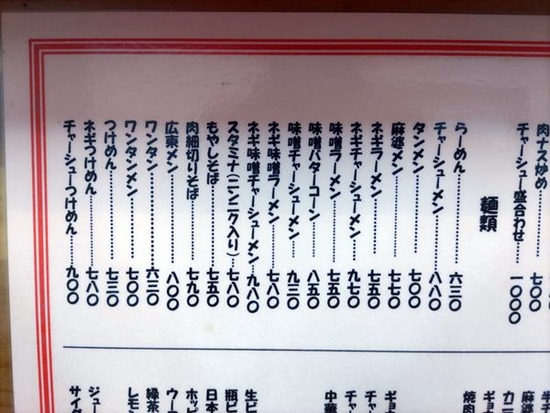 肉ナス炒め………七〇〇
チャーシュー盛合わせ……一〇〇〇
麺類
らーめん……………六三〇
チャーシューメン………八八〇
タンメン……………七〇〇
麻婆メン……………七七〇
ネギラーメン…………七五〇
ネギチャーシューメン……九七〇
味噌ラーメン…………七五〇
味噌バターコーン………八五〇
味噌チャーシューメン……九三〇
ネギ味噌ラーメン………七八〇
ネギ味噌チャーシューメン…九八〇
スタミナ(ニンニク入り)…七八〇
もやしそば……………七五〇
肉細切りそば…………七九〇
広東メン……………八〇〇
ワンタン……………六三〇
ワンタンメン…………七〇〇
つけめん……………七三〇
ネギつけめん…………七八〇
チャーシューつけめん……九〇〇
焼肉
カニ
麻婆
ギョ
チャ
チャ
ギョ
中華
生ビ
瓶ビ
日本
ホッピ
ウー
緑茶
レモン
ジュー
サイダ